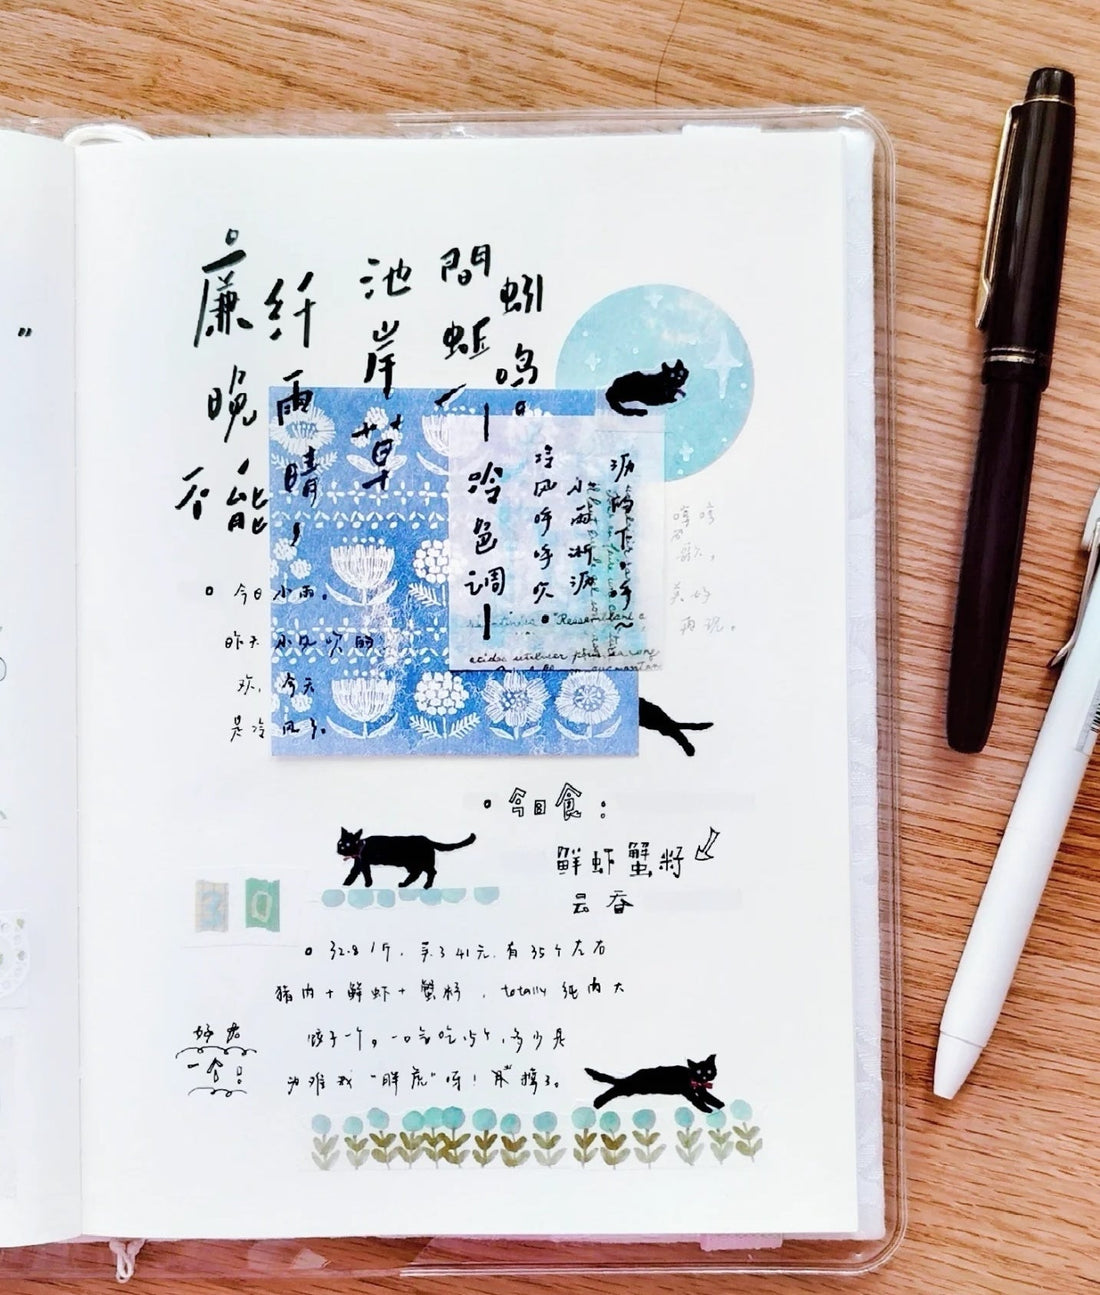 廉纤晚雨不能晴，
池岸草間蚯蚓鸣。
｜冷色调｜
冷风呼呼吹
小雨淅沥
沥的下。呼~
今日小雨。
昨天小风吹的
欢，今天
是冷风了。
今日食：
鲜虾蟹籽
云吞
30
32.8/斤，买了41元，有35个左右
猪肉+鲜虾+蟹籽，totally 纯肉大
饺子一个，一口气吃15个，多少是
为难我“胖虎”呀！
好友
一个！
"Ressemblant a